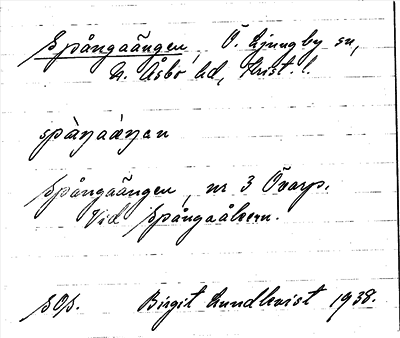 Spångaängen, Ö. Ljungby sn,
N. Åsbo hd, Krist. l.
spåŋaäŋen
Spångaängen, nr 3 Övarp.
Vid Spångaåkern.
sOp.
Birgit Lundkvist 1938.